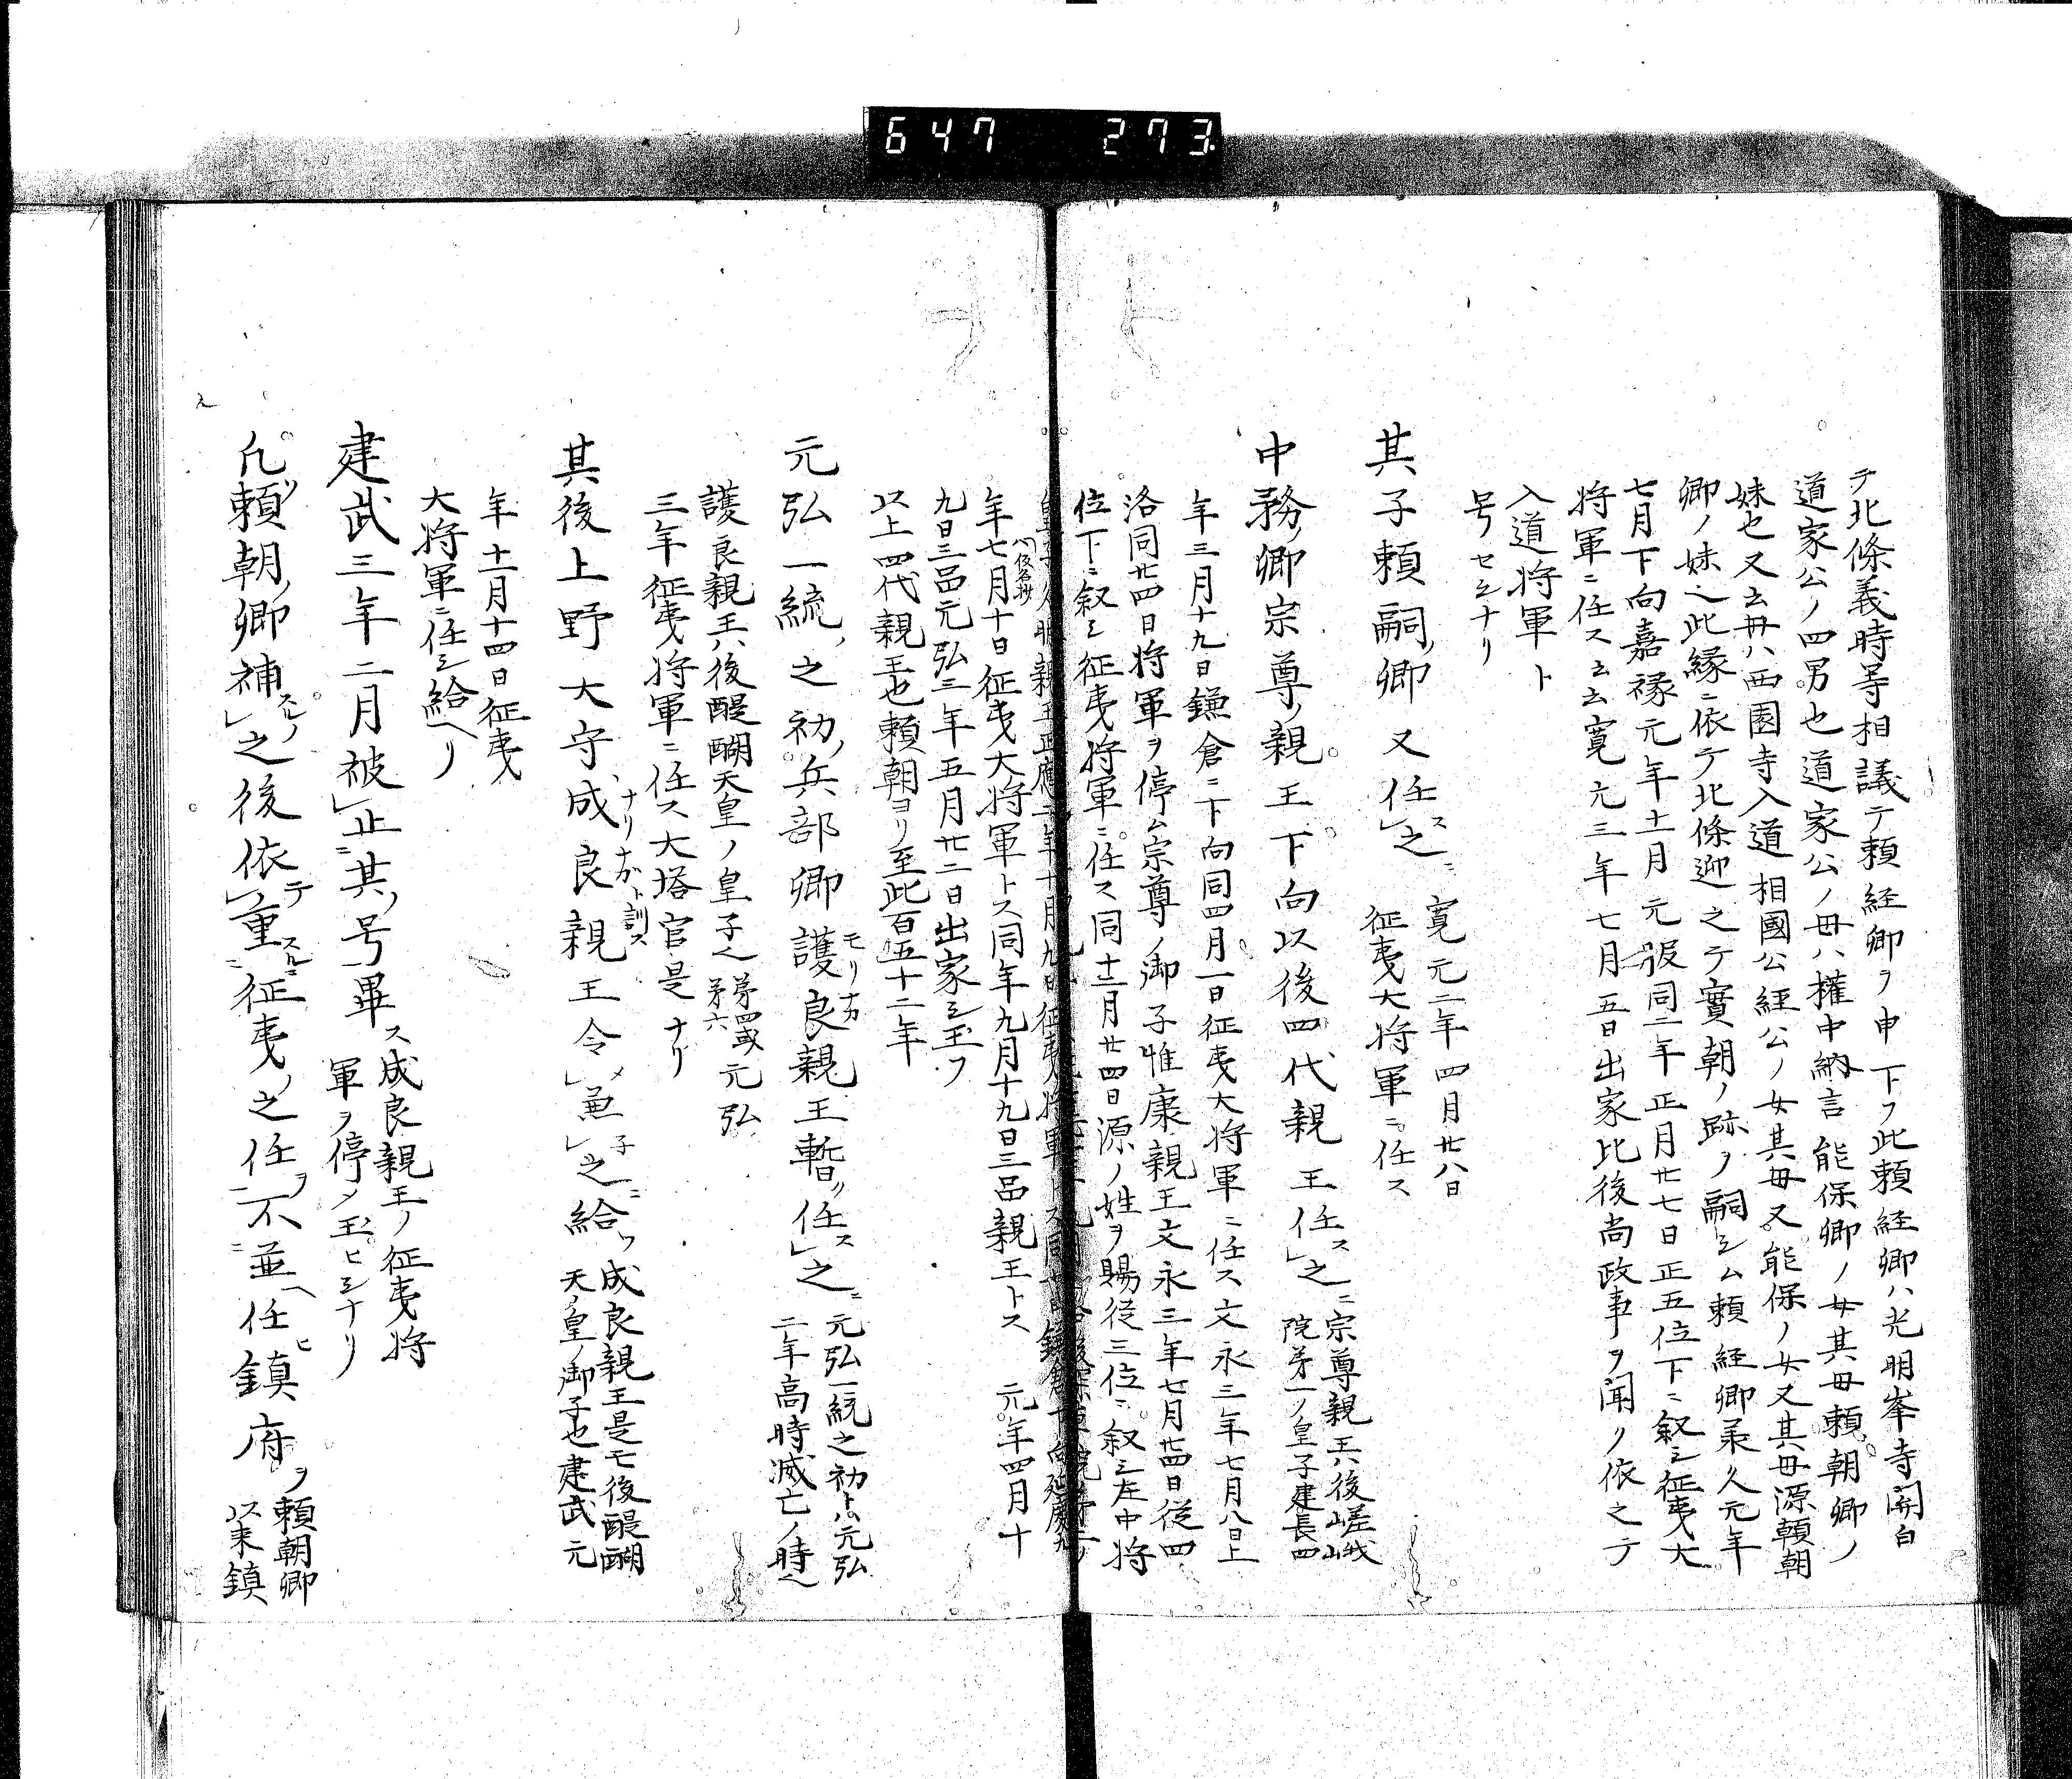 647 273
テ北條義時等相議テ頼経卿ヲ申下ス此頼経卿ハ光明峯寺関白
道家公ノ四男也道家公ノ母ハ權中納言能保卿ノ女其母頼朝卿ノ
妹也又云母ハ西園寺入道相國公経公ノ女其母又能保ノ女又其母源頼朝
卿ノ妹也此縁ニ依テ北條迎之テ實朝ノ跡ヲ嗣シム頼経卿承久元年
七月下向嘉禄元年十二月元服同二年正月廿七日正五位下ニ叙シ征夷大
将軍ニ任ス云云寛元三年七月五日出家比後尚政事ヲ聞ク依之テ
入道将軍ト
号セシナリ
其子頼嗣ノ卿又任ス之ニ 寛元二年四月廿八日
征夷大将軍ニ任ス
中務ノ卿宗尊ノ親王下向以後四代親王任ス之ニ 宗尊親王ハ後嵯峨
院第一ノ皇子建長四
年三月十九日鎌倉ニ下向同四月一日征夷大将軍ニ任ス文永三年七月八日上
洛同廿四日将軍ヲ停ム宗尊ノ御子惟康親王文永三年七月廿四日従四
位下ニ叙シ征夷将軍ニ任ス同十二月廿四日源ノ姓ヲ賜従三位ニ叙シ左中将
年七月十日征夷大将軍トス同年九月十九日三品親王トス 元年四月十
九日三品元弘三年五月廿二日出家シ玉フ
以上四代親王也頼朝ヨリ至此百五十二年
元弘一統ノ之初ノ兵部卿護良親王暫ク任ス之ニ 元弘一統之初トハ元弘
モリナカ
二年高時滅亡ノ時也
護良親王ハ後醍醐天皇ノ皇子也 第四或第六 元弘
三年征夷将軍ニ任ス大塔宮是ナリ
其後上野大守成良親王令メ兼之ニ給フ 成良親王是モ後醍醐
ナリナカト訓ス
天皇ノ御子也建武元
年十一月十四日征夷
大将軍ニ任シ給ヘリ
建武三年二月被止其ノ号畢ス 成良親王ノ征夷将
軍ヲ停メ玉ヒシナリ
凡ソ頼朝ノ卿補スルノ之後依テ重スルニ征夷ノ之任ヲ不並ヘ任ヒ鎮府ヲ 頼朝卿
以来鎮